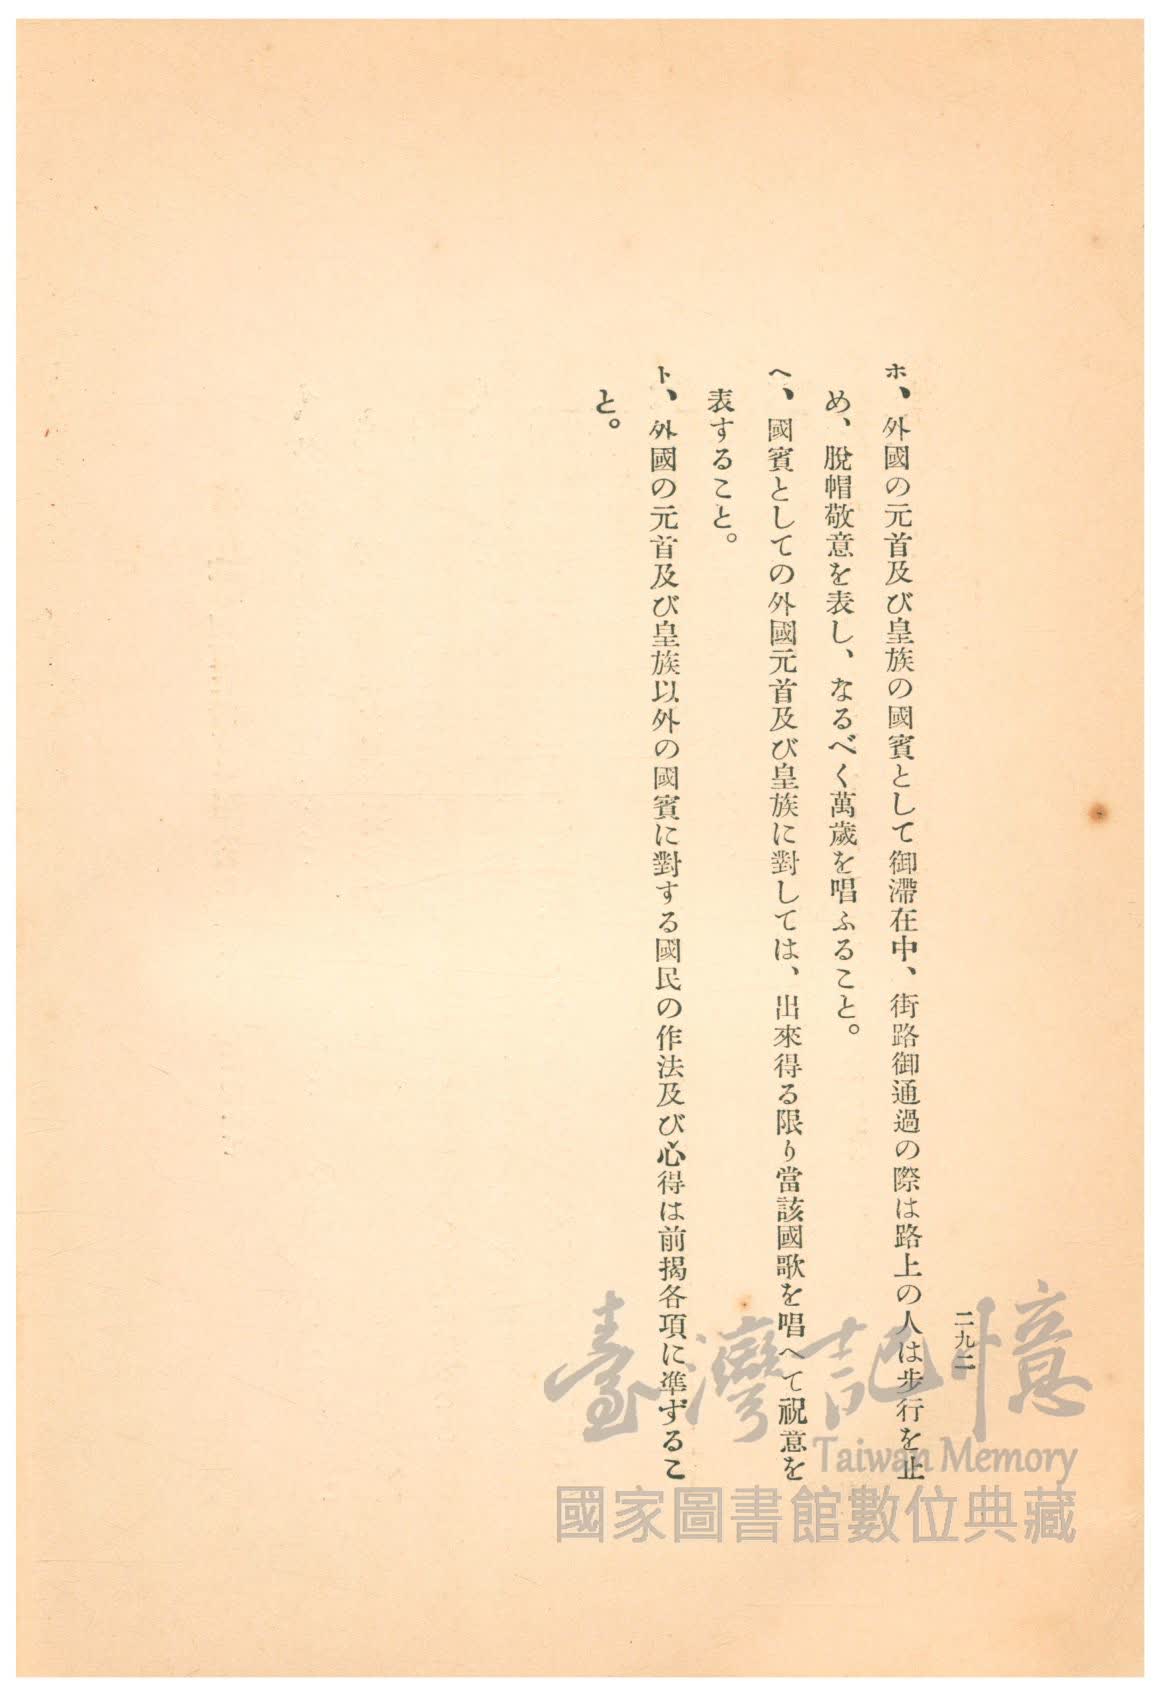 二九二
ホ、外國の元首及び皇族の國賓として御滯在中、街路御通過の際は路上の人は步行を止
め、脫帽敬意を表し、なるべく萬歲を唱ふること。
ヘ、國賓としての外國元首及び皇族に對しては、出來得る限り當該國歌を唱へて祝意を
表すること。
ト、外國の元首及び皇族以外の國賓に對する國民の作法及び心得は前揭各項に準ずるこ
と。
臺灣記憶
Taiwan Memory
國家圖書館數位典藏